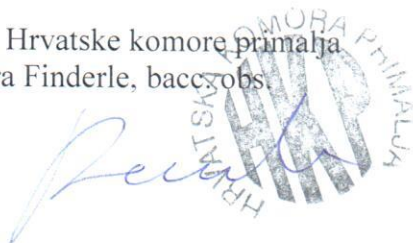 Hrvatske komore primalja
ra Finderle, bacc. obs.
HRVATSKA KOMORA PRIMALJA
HKP